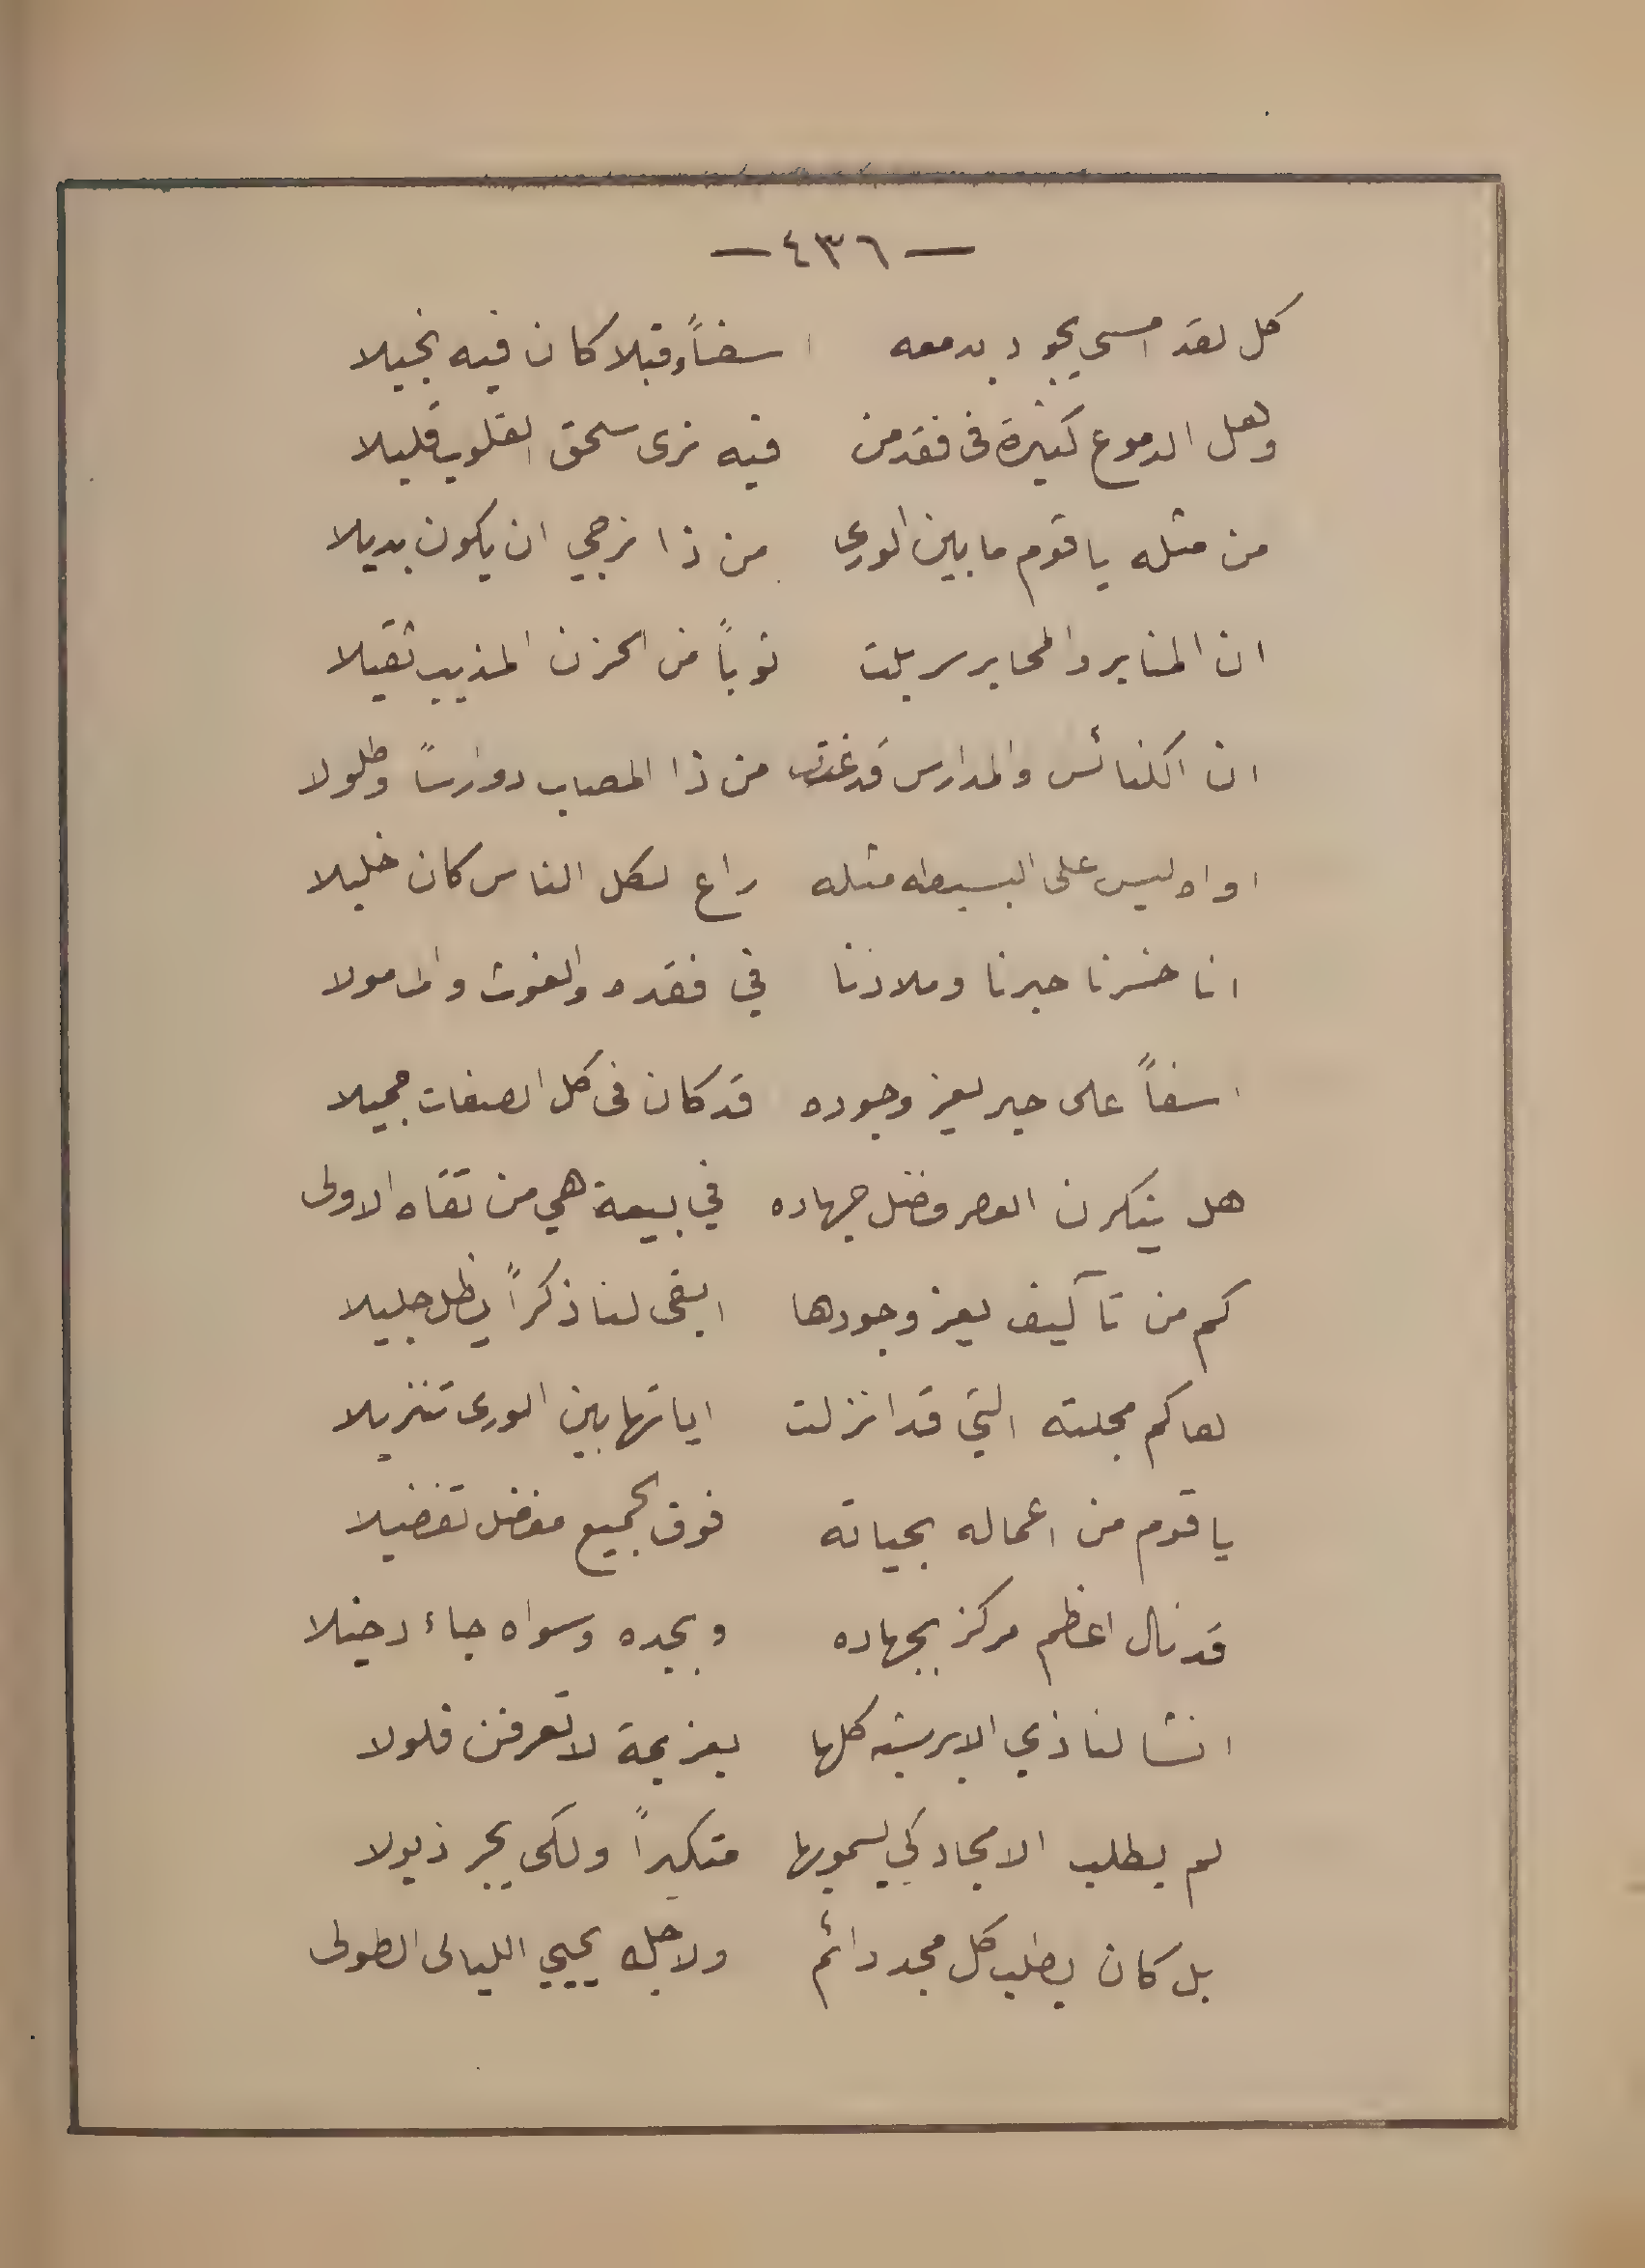 — ٤٣٦ —
كل لقد امسى يجود بدمعه اسفاً وقبلا كان فيه بخيلا
وهل الدموع كثيرة في فقد من فيه نرى سحق القلوب قليلا
من مثله يا قوم ما بين الورى من ذا نرجي ان يكون بديلا
ان المنابر والمحابر سربلت ثوباً من الحزن المذيب ثقيلا
ان الكنائس والمدارس قد غدت من ذا المصاب دوارساً وطلولا
اواه ليس على البسيطه مثله راع لكل الناس كان خليلا
انا خسرنا حبرنا وملاذنا في فقده والغوث والمامولا
اسفاً على حبر يعز وجوده قد كان في كل الصفات جميلا
هل ينكرن العصر فضل جهاده في بيعة هي من تقاه الاولى
كم من تآليف يعز وجودها ابقى لنا ذكراً يظل جليلا
هاكم مجلته التي قد انزلت اياتها بين الورى تنزيلا
يا قوم من اعماله بحياته فوق الجميع مفضل تفضيلا
قد نال اعظم مركز بجهاده وبجده وسواه جاء دخيلا
انشا لنا ذي الابرشيه كلها بعزيمة لا تعرفن فلولا
لم يطلب الامجاد كي يسمو بها متكبراً ولكى يجر ذيولا
بل كان يطلب كل مجد دائم ولاجله يحيي الليالى الطولى